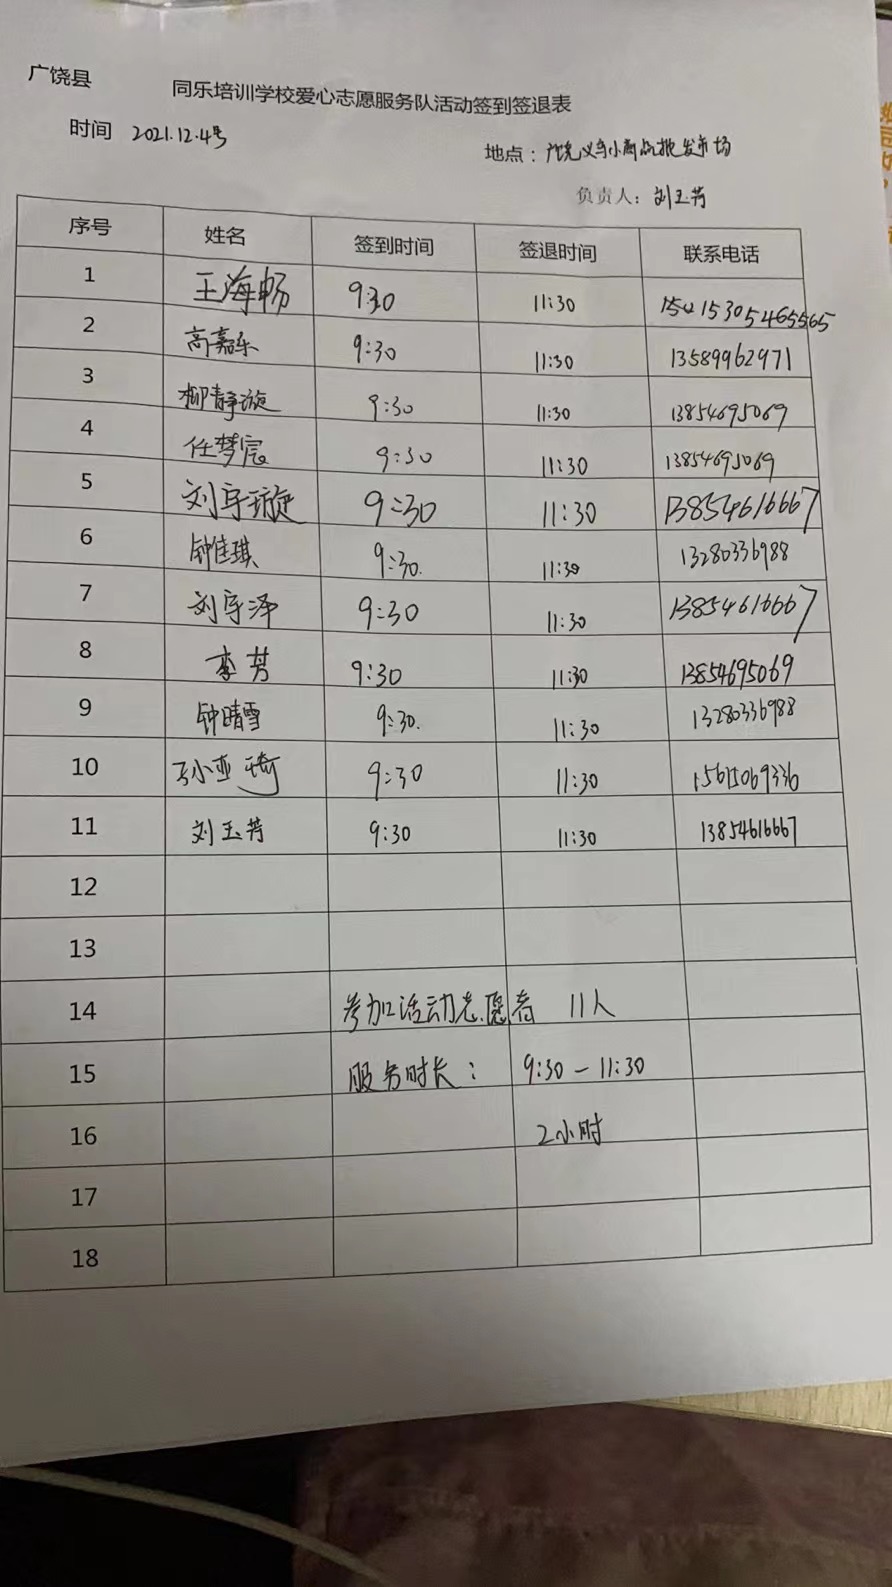 广饶县 同乐培训学校爱心志愿服务队活动签到签退表
时间 2021.12.4号
地点：广饶义乌小商品批发市场
负责人：刘玉芳
序号 姓名 签到时间 签退时间 联系电话
1 王海畅 9:30 11:30 15415305465565
2 高嘉乐 9:30 11:30 13589962971
3 柳静漩 9:30 11:30 13854695069
4 任梦宸 9:30 11:30 13854695069
5 刘宇璇 9:30 11:30 13854616667
6 钟佳琪 9:30. 11:30 13280336988
7 刘宇泽 9:30 11:30 13854616667
8 李芳 9:30 11:30 13854695069
9 钟晴雪 9:30. 11:30 13280336988
10 孙亚琦 9:30 11:30 15615069336
11 刘玉芳 9:30 11:30 13854616667
12
13
14 参加活动志愿者 11人
15 服务时长： 9:30－11:30
16 2小时
17
18